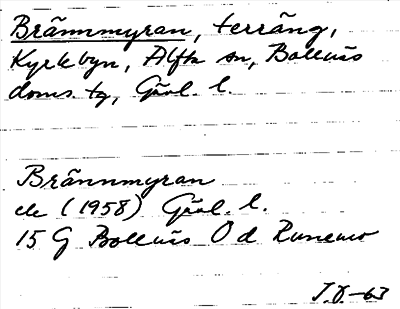 Brännmyran, terräng,
Kyrkbyn, Alfta sn, Bollnäs
doms. tg, Gävl. l.
Brännmyran
ek (1958) Gävl. l.
15 G Bollnäs O d Runemo
T.D.-63